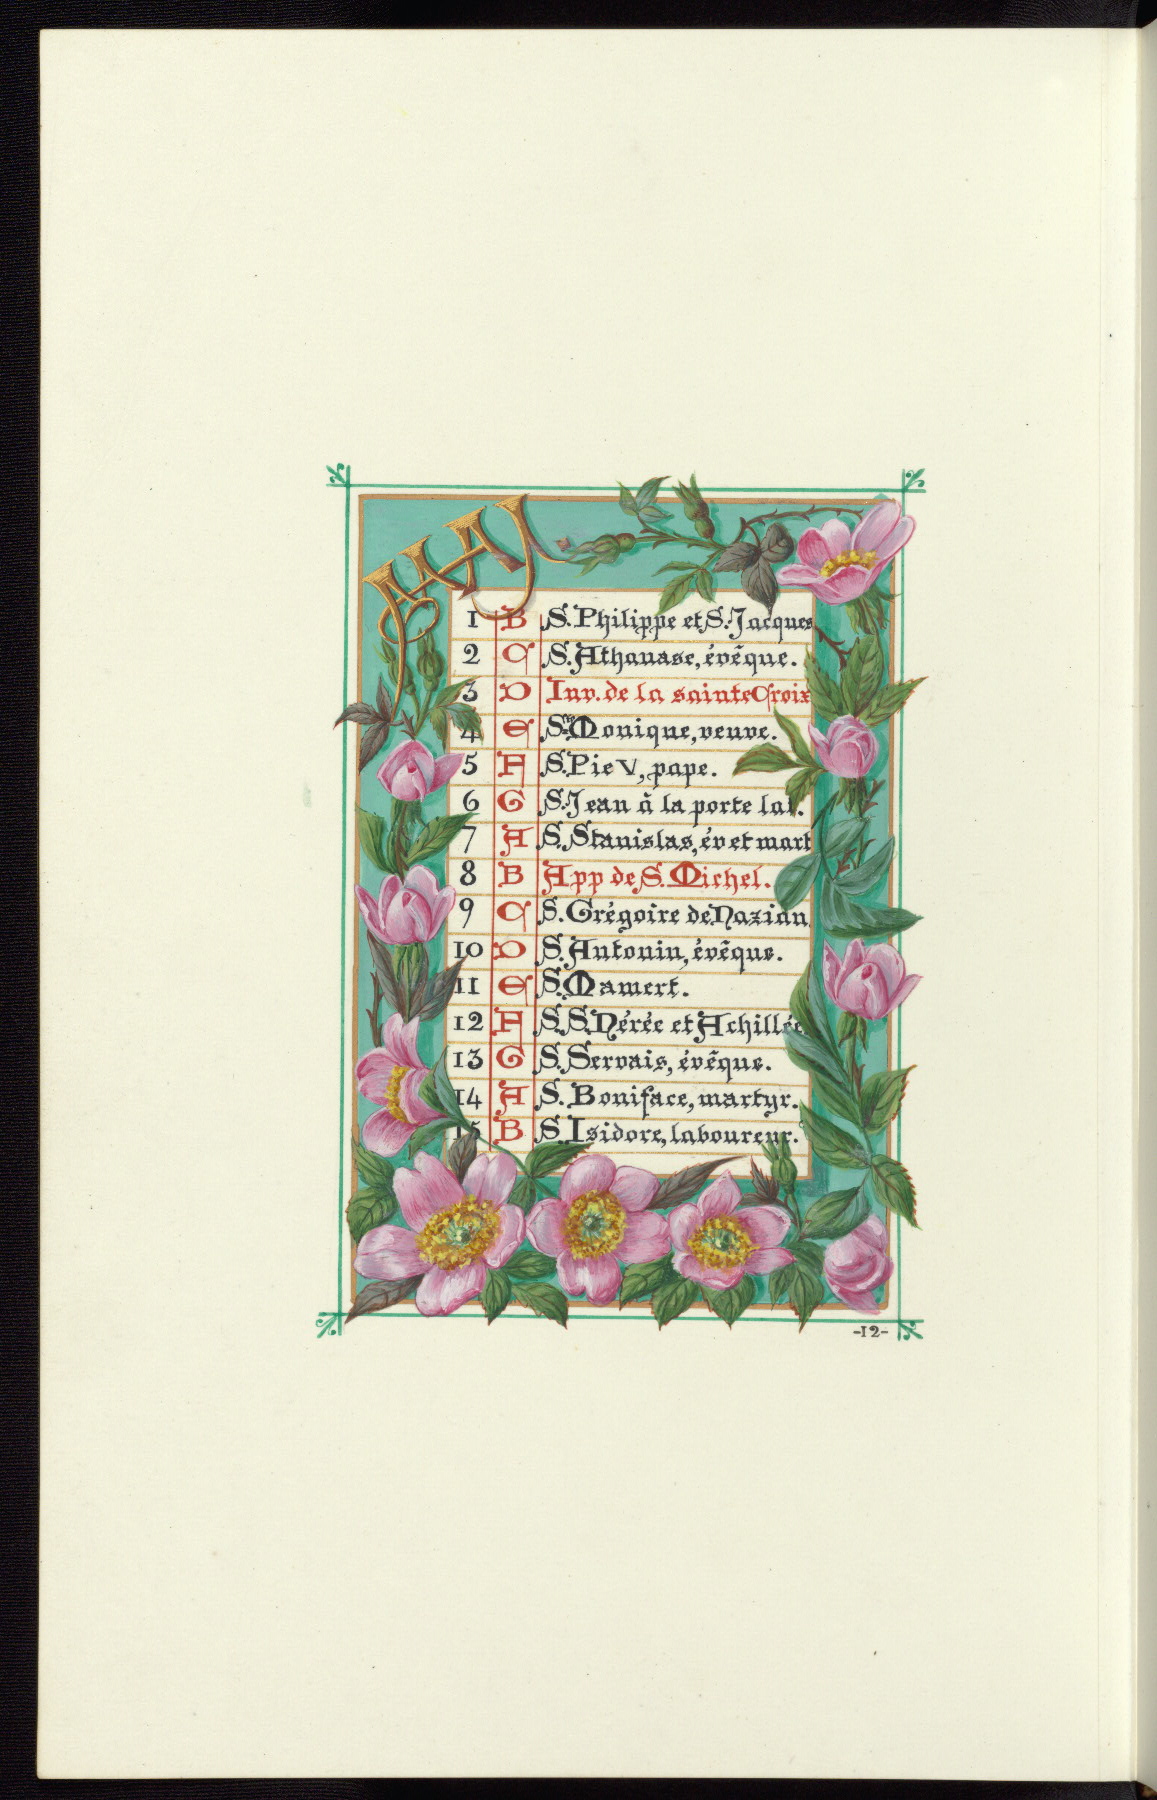 MAJ
1 B S. Philippe et S. Jacques
2 C S. Athanase, évêque.
3 D Inv. de la sainte Croix
4 E Ste Monique, veuve.
5 F S. Pie V, pape.
6 G S. Jean à la porte lat.
7 A S. Stanislas, év et mart
8 B App de S. Michel.
9 C S. Grégoire de Nazian
10 D S. Antonin, évêque.
11 E S. Mamert.
12 F S.S. Nérée et Achillée
13 G S. Servais, évêque.
14 A S. Boniface, martyr.
15 B S. Isidore, laboureur.
-12-